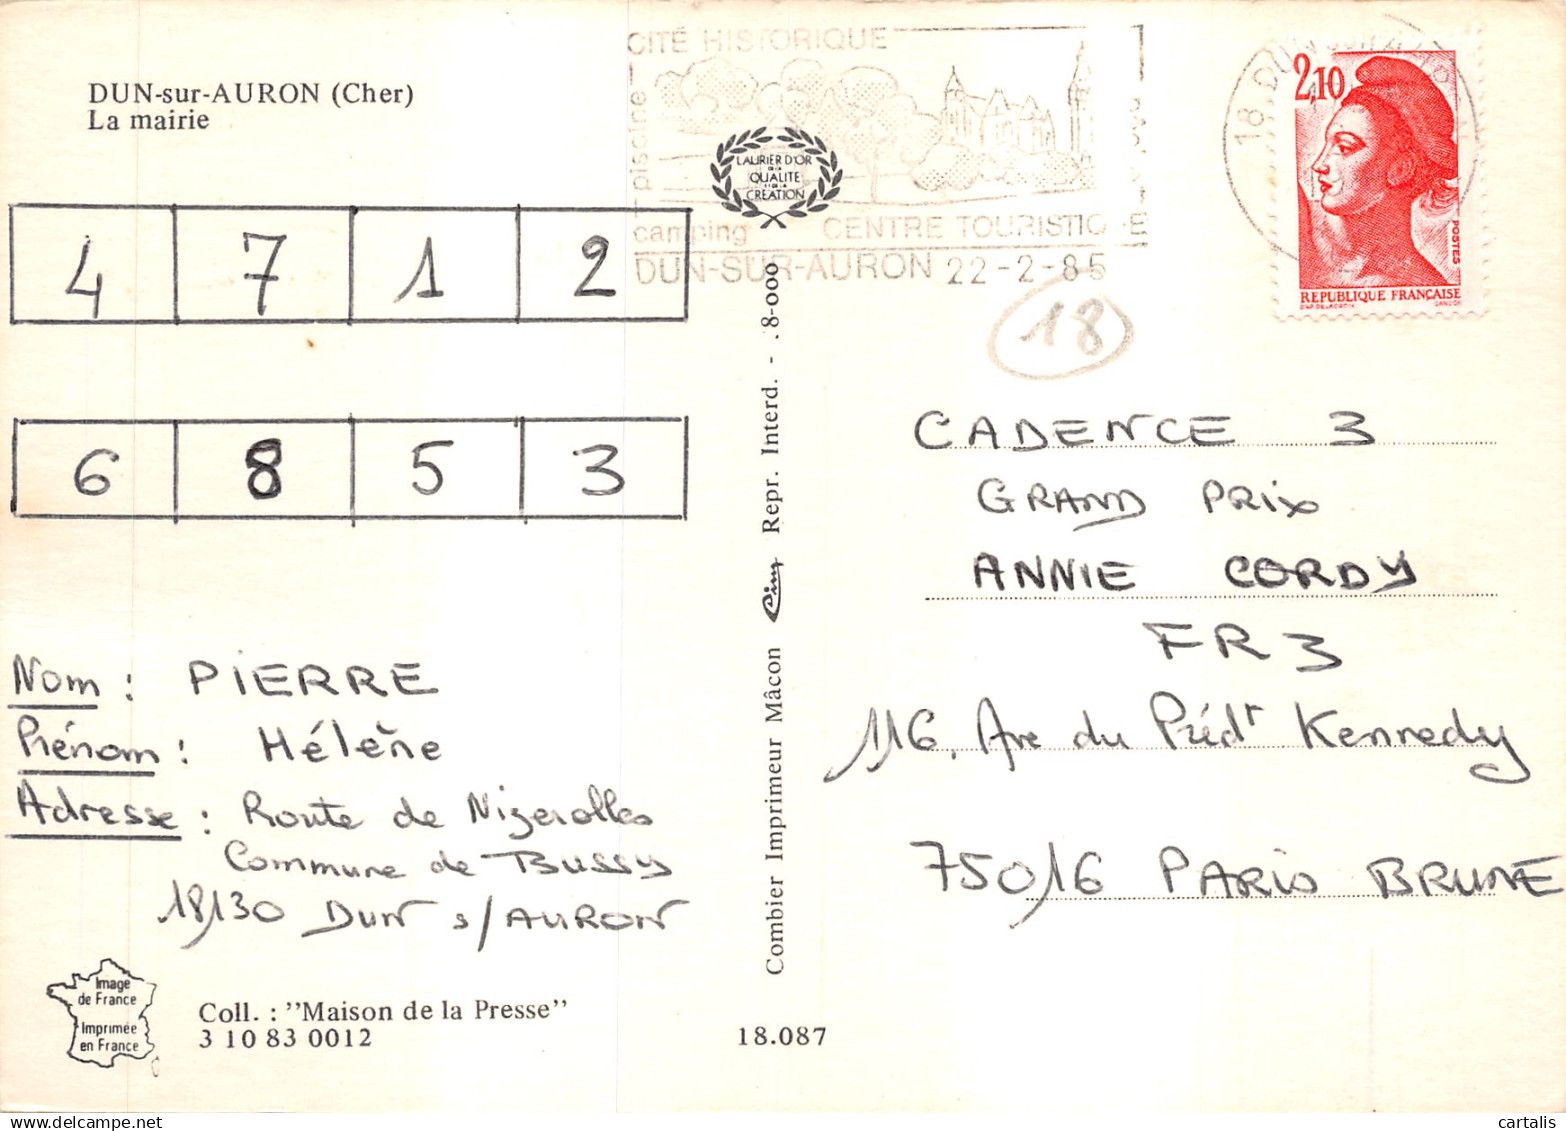 DUN-sur-AURON (Cher)
La mairie
CITÉ HISTORIQUE
piscine
camping CENTRE TOURISTIQ E
DUN-SUR-AURON 22-2-85
LAURIER D'OR
DE LA
QUALITE
ET DE LA
CREATION
18. DUN
2,10
POSTES
REPUBLIQUE FRANÇAISE
18
4 7 1 2
6 8 5 3
CADENCE 3
GRAND PRIX
ANNIE CORDY
FR3
116, Ave du Prédt Kennedy
75016 PARIS BRUNE
Nom : PIERRE
Prénom : Hélène
Adresse : Route de Nizerolles
Commune de Bussy
18130 DUN s/AURON
Combier Imprimeur Mâcon Cim Repr. Interd. - 8-000
Image
de France
Imprimée
en France
Coll. : "Maison de la Presse"
3 10 83 0012
18.087
cartalis